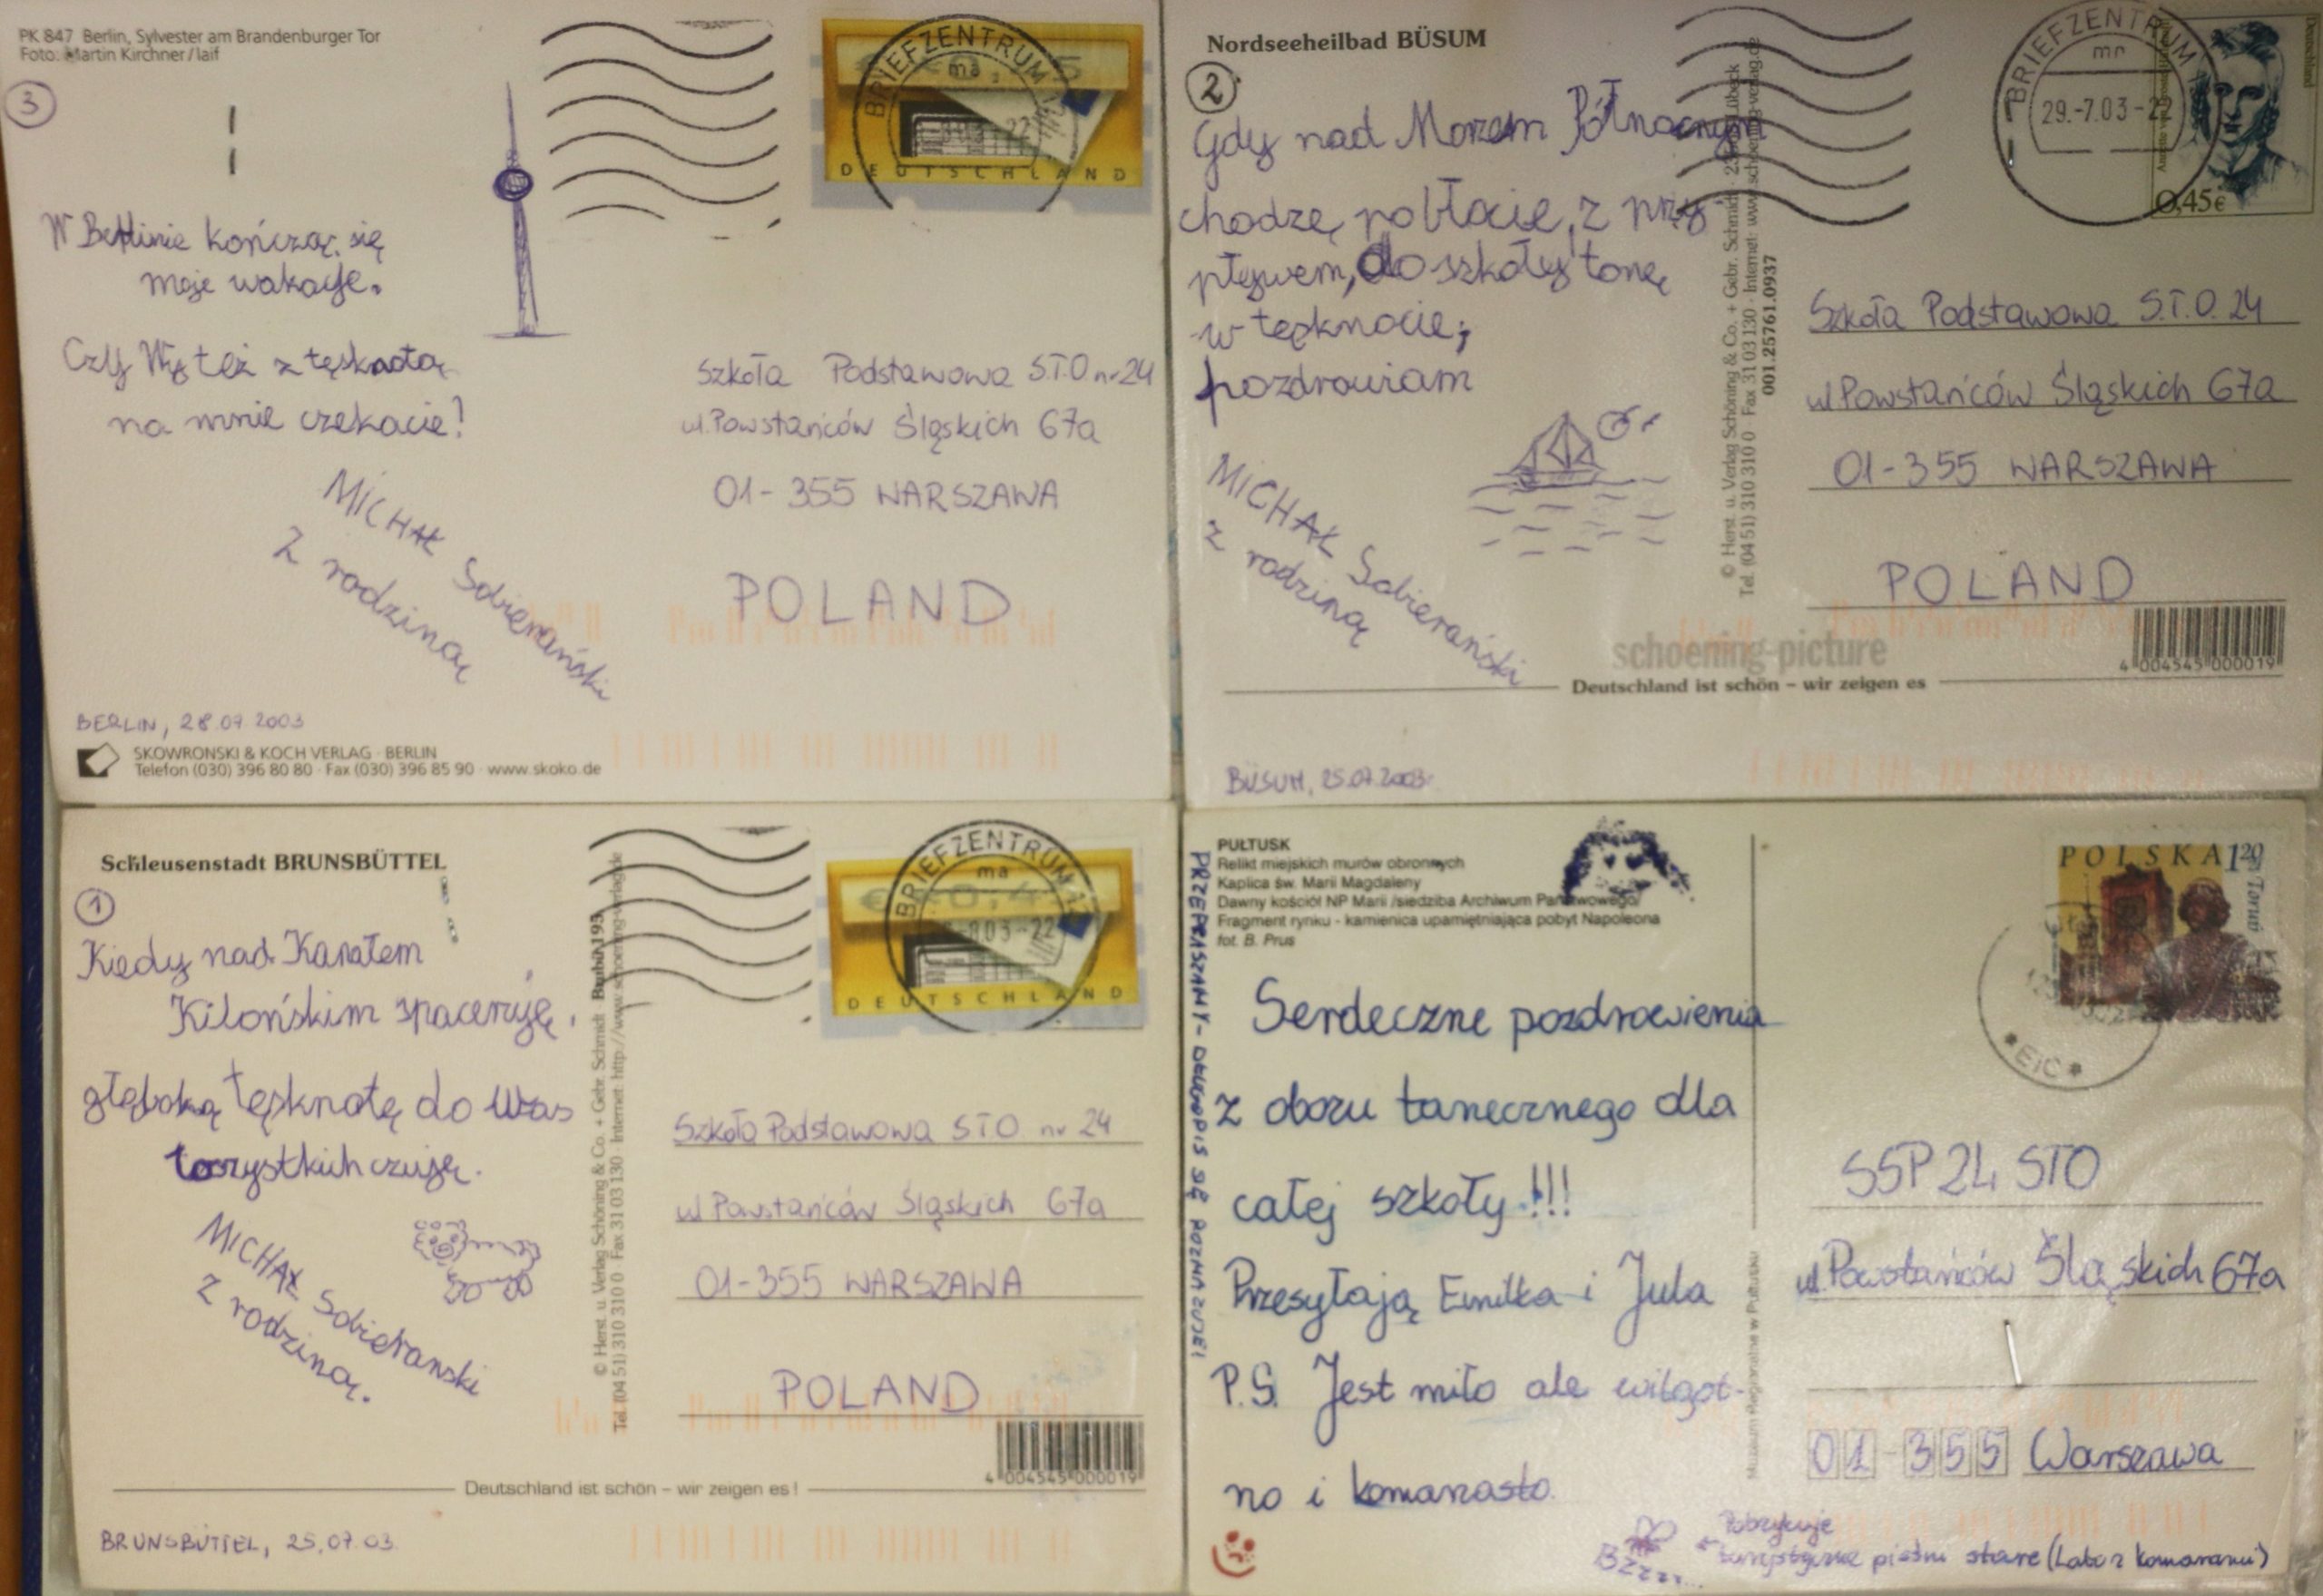 PK 847 Berlin, Sylvester am Brandenburger Tor
Foto: Martin Kirchner/laif
3
W Berlinie kończą się
moje wakacje.
Czy Wy też z tęsknotą
na mnie czekacie?
MICHAŁ Sobierański
z rodziną
BERLIN, 28.07.2003
SKOWRONSKI & KOCH VERLAG · BERLIN
Telefon (030) 396 80 80 · Fax (030) 396 85 90 · www.skoko.de
BRIEFZENTRUM
ma
DEUTSCHLAND
Szkoła Podstawowa S.T.O nr 24
ul. Powstańców Śląskich 67a
01-355 WARSZAWA
POLAND
Nordseeheilbad BÜSUM
2
Gdy nad Morzem Północnym
chodzę po błocie, z przy-
pływem, do szkoły tonę
w tęsknocie;
pozdrawiam
MICHAŁ Sobierański
z rodziną
© Herst. u. Verlag Schöning & Co. + Gebr. Schmidt
Tel. (04 51) 310 310 0 · Fax 31 03 130 · Internet: www.schoening-verlag.de
001.25761.0937
BRIEFZENTRUM
mn
29.-7.03-22
Deutschland
0,45€
Szkoła Podstawowa S.T.O. 24
ul Powstańców Śląskich 67a
01-355 WARSZAWA
POLAND
4 004545 000019
schoening-picture
Deutschland ist schön – wir zeigen es
BÜSUM, 25.07.2003
Schleusenstadt BRUNSBÜTTEL
1
Kiedy nad Kanałem
Kilońskim spaceruję,
głęboką tęsknotę do Was
wszystkich czuję.
MICHAŁ Sobierański
z rodziną.
© Herst. u. Verlag Schöning & Co. + Gebr. Schmidt
Tel. (04 51) 310 310 0 · Fax 31 03 130 · Internet: http://www.schoening-verlag.de
BRIEFZENTRUM
ma
DEUTSCHLAND
Szkoła Podstawowa STO nr 24
ul Powstańców Śląskich 67a
01-355 WARSZAWA
POLAND
4 004545 000019
Deutschland ist schön – wir zeigen es!
BRUNSBÜTTEL, 25.07.03
PUŁTUSK
Relikt miejskich murów obronnych
Kaplica św. Marii Magdaleny
Dawny kościół NP Marii /siedziba Archiwum Państwowego/
Fragment rynku - kamienica upamiętniająca pobyt Napoleona
fot. B. Prus
PRZEPRASZAMY- DŁUGOPIS SIĘ ROZMAZUJE!
Serdeczne pozdrowienia
z obozu tanecznego dla
całej szkoły!!!
Przesyłają Emilka i Jula
P.S. Jest miło ale wilgot-
no i komarzasto.
Bzzzz...
piętni stare (Labo z komarami)
Muzeum Regionalne w Pułtusku
POLSKA 1 20
Toruń
SSP 24 STO
ul. Powstańców Śląskich 67a
01-355 Warszawa